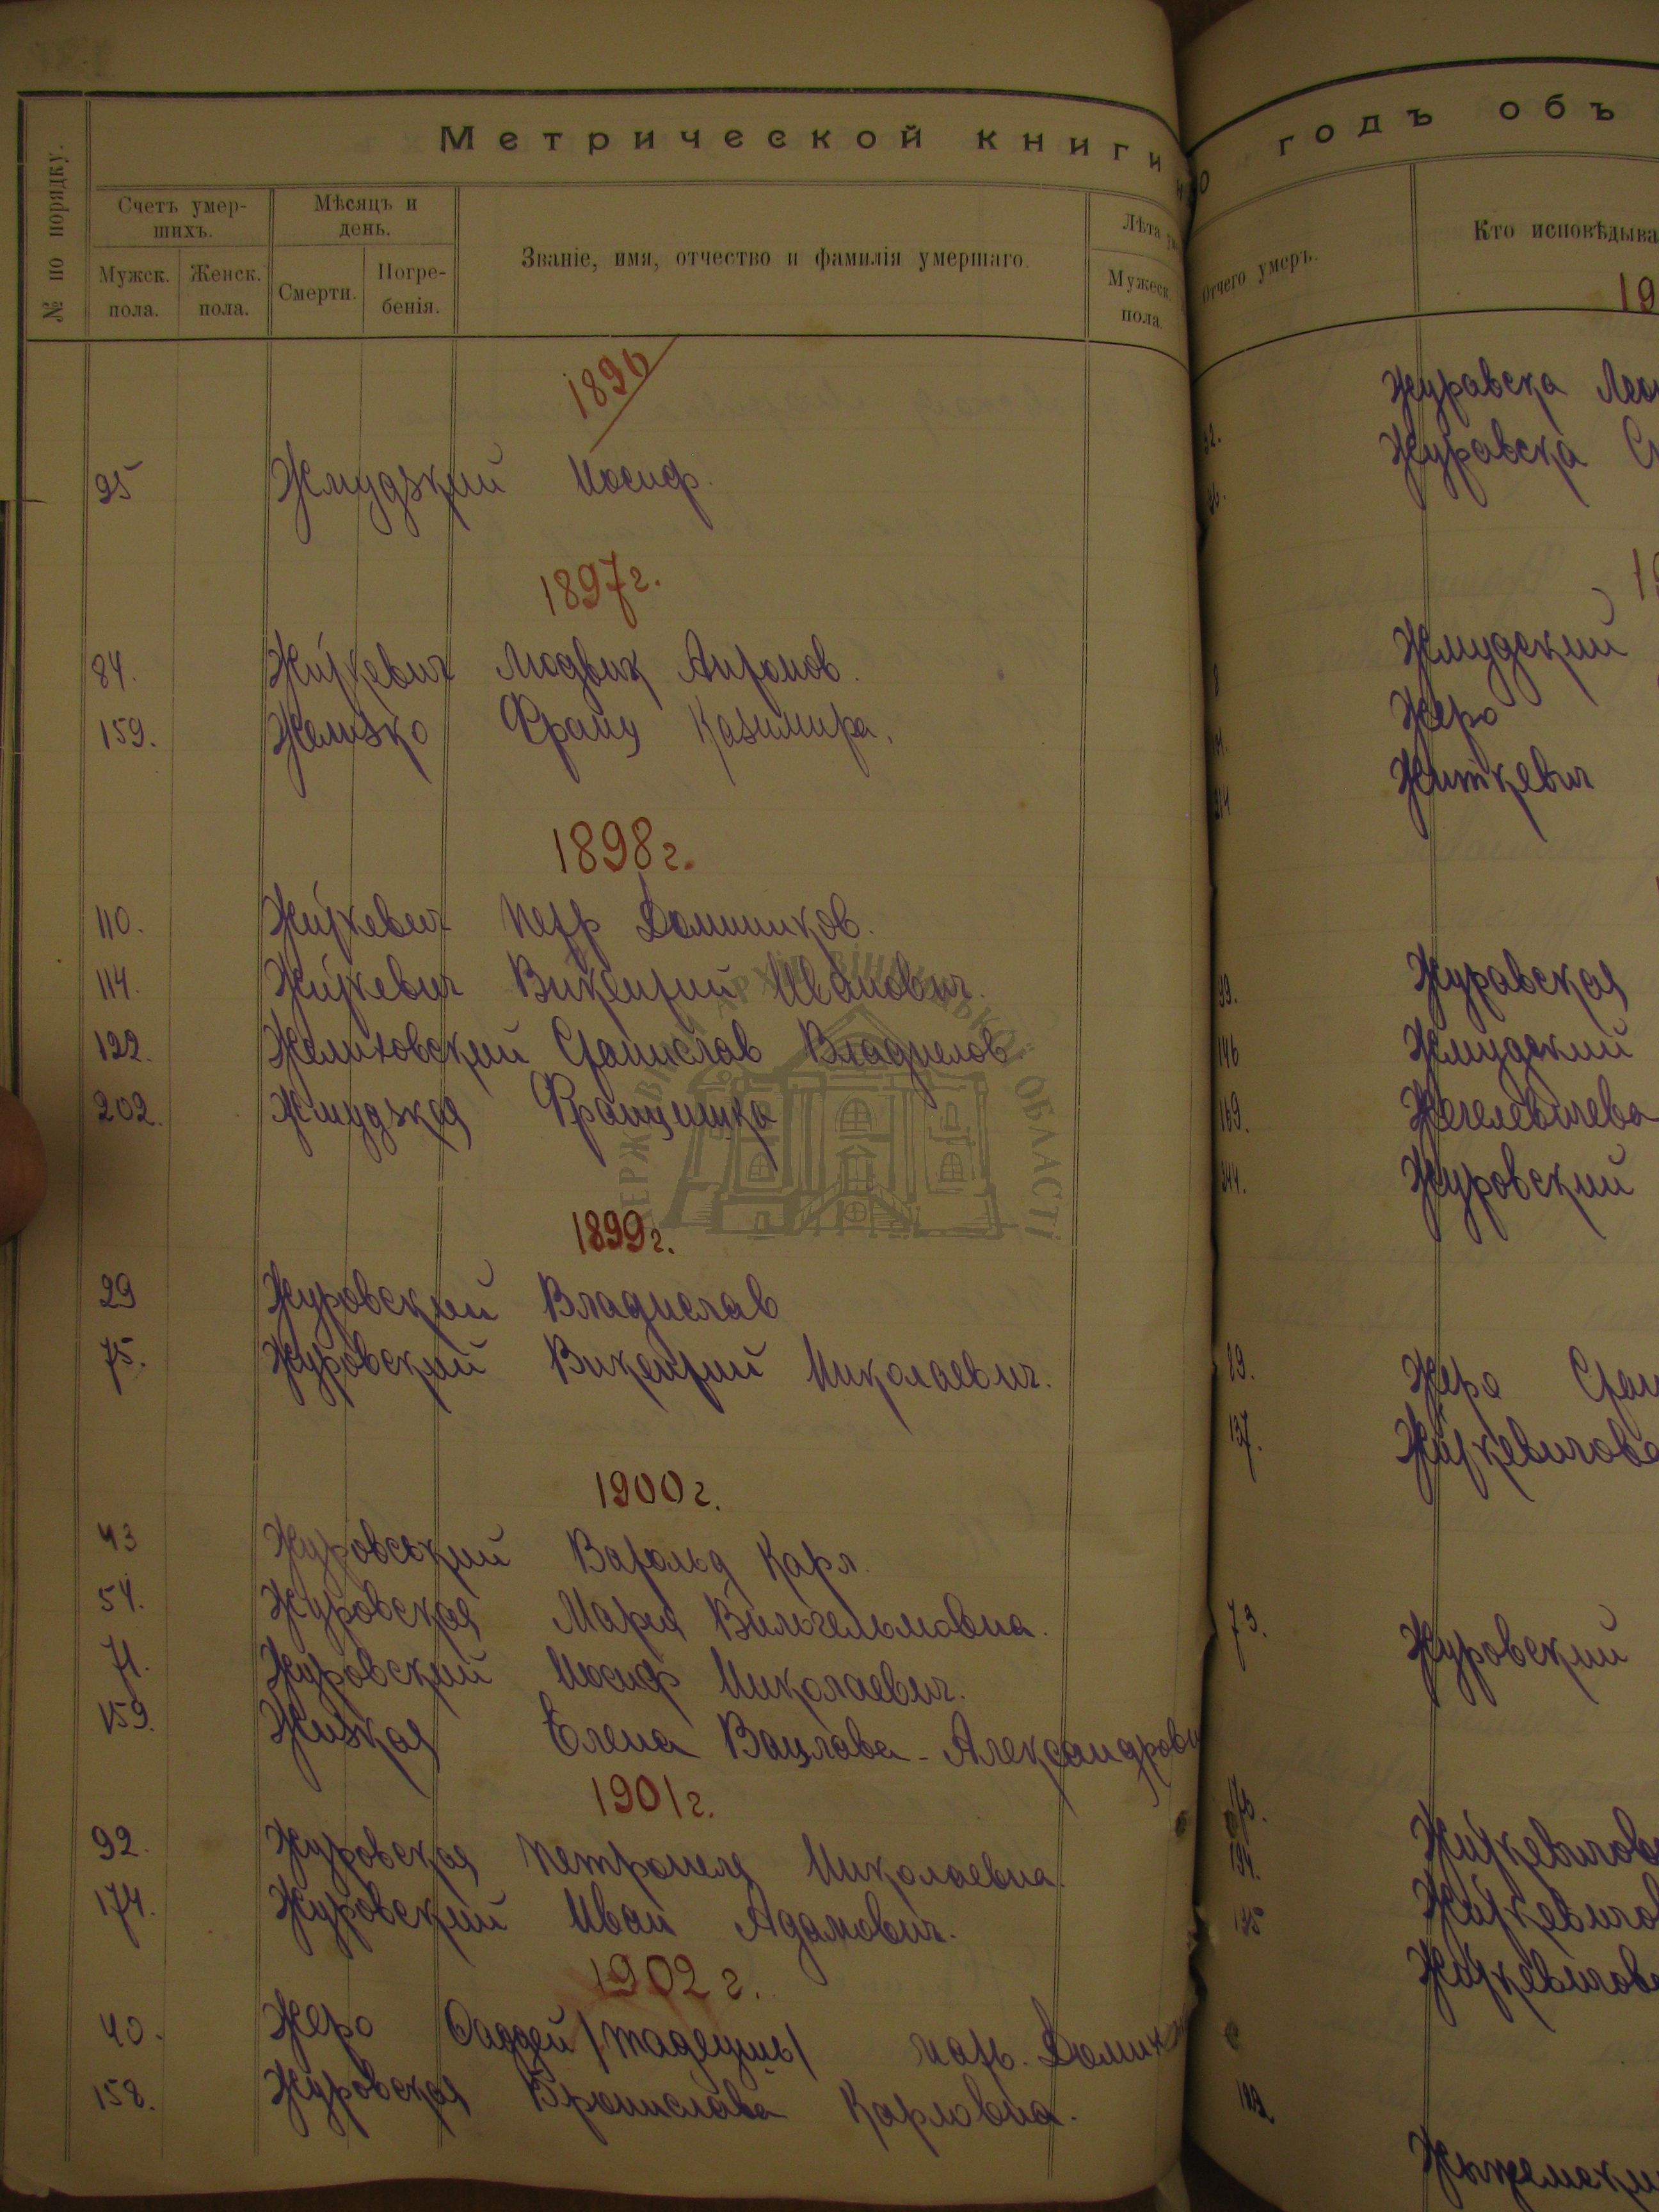 Метрической книги
№ по порядку.
Счетъ умер-
шихъ.
Мужск.
пола.
Женск.
пола.
Мѣсяцъ и
день.
Смерти.
Погре-
бенія.
Званіе, имя, отчество и фамилія умершаго.
Лѣта
Мужеск.
пола.
1896
95 Жмудзкий Иосиф.
1897г.
84. Житкевич Людвик Антонов.
159. Желизко Франц Казимира.
1898г.
110. Житкевич Петр Домиников.
114. Житкевич Викентий Иванович.
122. Желиховский Станислав Владислов
202. Жмудзкая Францишка
1899г.
29 Журовский Владислав
75. Журовский Викентий Николаевич.
1900г.
43 Журовський Витольд Карл.
54. Журовская Мария Вильгельмовна.
71. Журовский Иосиф Николаевич.
159. Жизкая Елена Вацлава-Александровн
1901г.
92. Журовская Петронеля Николаевна.
174. Журовский Иван Адамович.
1902г.
40. Жеро Фаддей /Тадеушь/ мать. Домин
158. Журовская Бронислава Карловна.
ДЕРЖАВНИЙ АРХІВ ВІННИЦЬКОЇ ОБЛАСТІ
годъ объ
Отчего умеръ.
Кто исповѣдыва
19
Журавска
Журавска
Жмудский
Жеро
Житкевич
Журавская
146 Жмудский
169. Жегелевичева
244. Журовский
89. Жеро Стан
137. Житкевичова
73. Журовский
Житкевичов
194. Житкевичо
195 Житкевичов